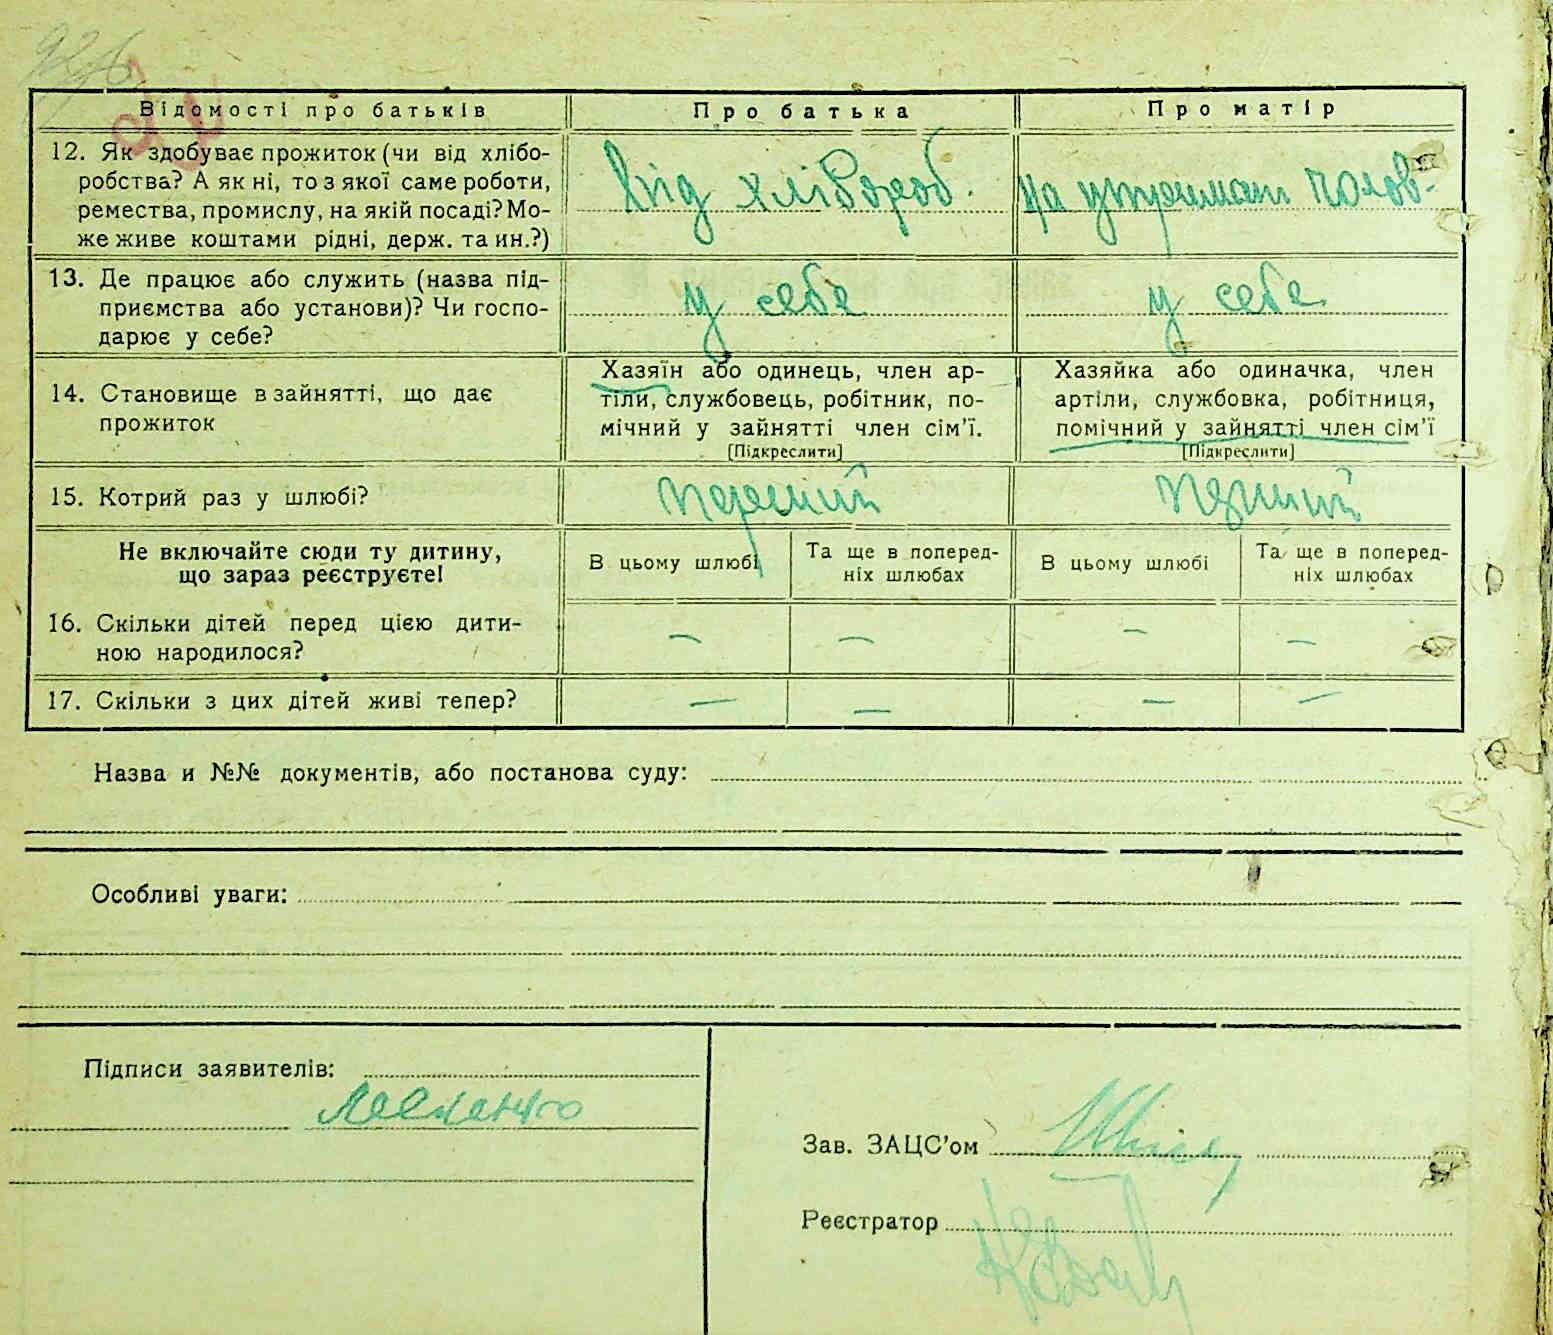 Відомості про батьків Про батька Про матір
12. Як здобуває прожиток (чи від хлібо- робства? А як ні, то з якої саме роботи, ремества, промислу, на якій посаді? Мо- же живе коштами рідні, держ. та ин.?)
Від хлібороб. на утриман чолов.
13. Де працює або служить (назва під-
приємства або установи)? Чи госпо-
дарює у себе?
у себе у себе
14. Становище в зайнятті, що дає
прожиток
Хазяїн або одинець, член ар-
тіли, службовець, робітник, по-
мічний у зайнятті член сім'ї.
[Підкреслити]
Хазяйка або одиначка, член
артіли, службовка, робітниця,
помічний у зайнятті член сім'ї
[Підкреслити]
15. Котрий раз у шлюбі? перший перший
Не включайте сюди ту дитину,
що зараз реєструєте!
В цьому шлюбі
Та ще в поперед-
ніх шлюбах
В цьому шлюбі
Та ще в поперед-
ніх шлюбах
16. Скільки дітей перед цією дити-
ною народилося?
— — — —
17. Скільки з цих дітей живі тепер? — — — —
Назва и №№ документів, або постанова суду:
Особливі уваги:
Підписи заявителів:
Зав. ЗАЦС'ом
Реєстратор